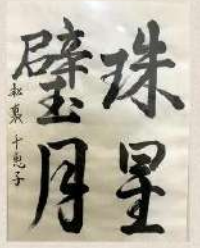 珠星
璧月
松裏千恵子